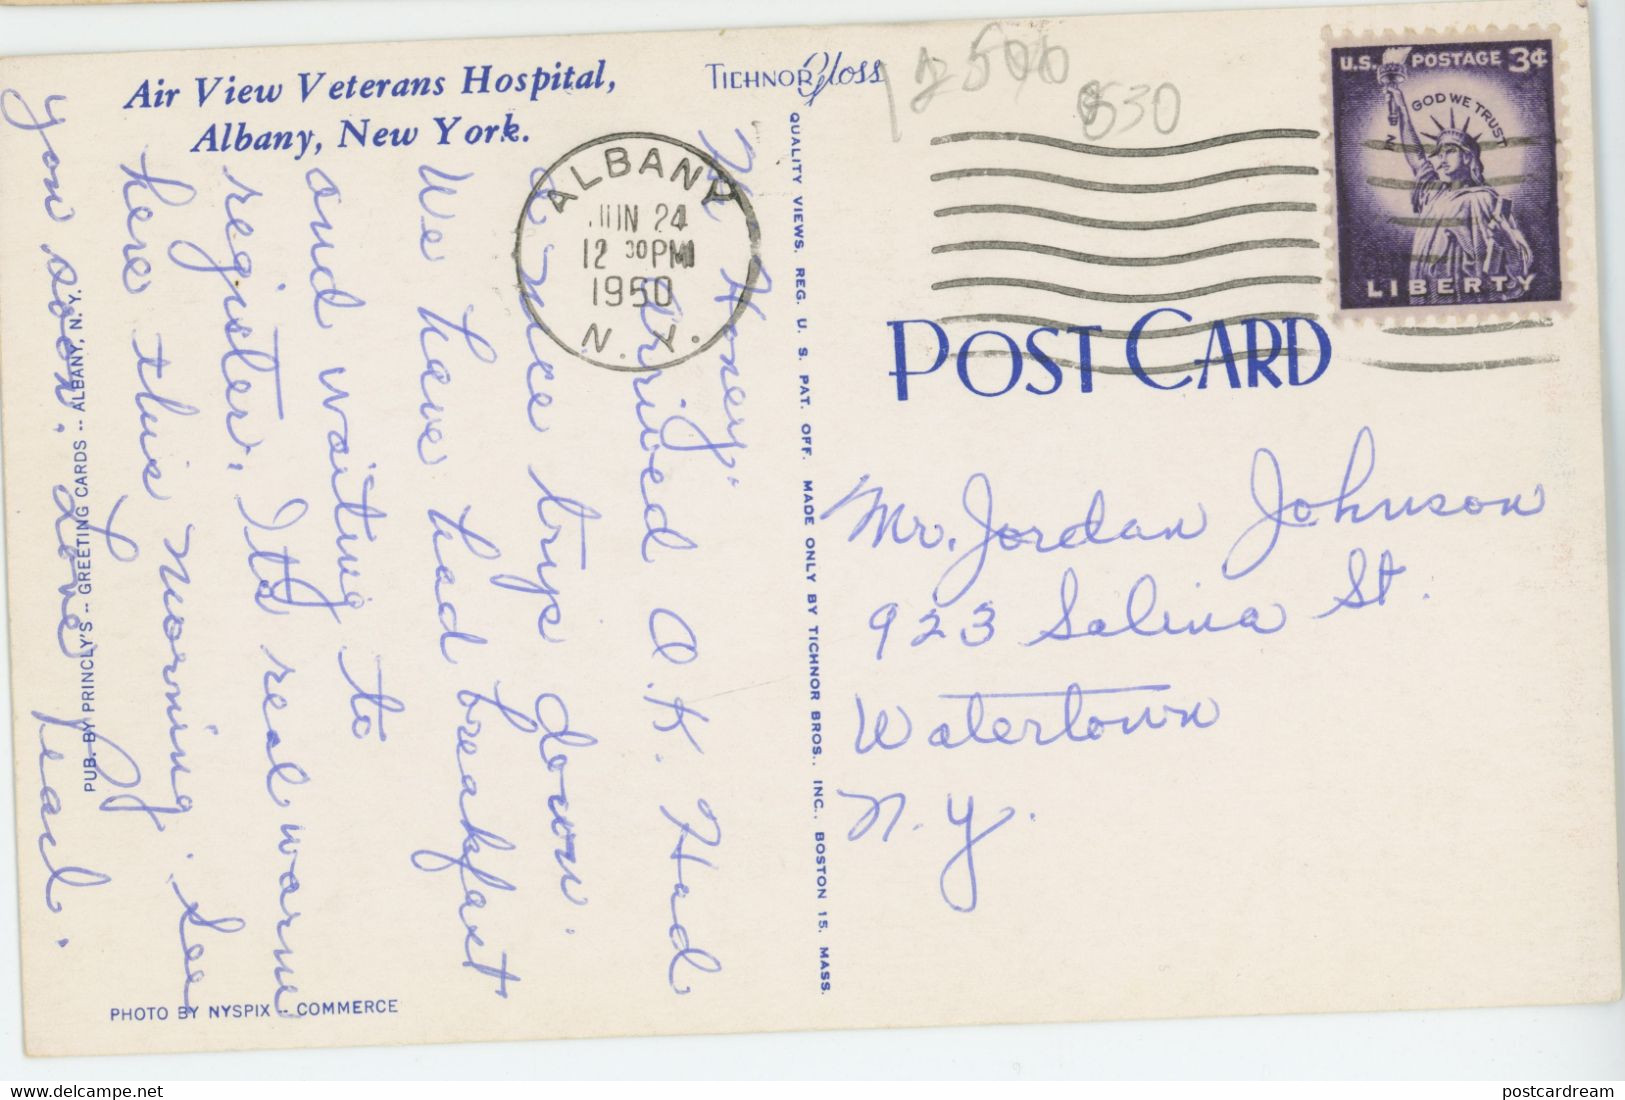 Air View Veterans Hospital,
Albany, New York.
TICHNOR Gloss
Hi Honey.
Arrived O.K. Had
a nice trip down.
We have had breakfast
and waiting to
register. Its real warm
here this morning. See
you soon. Love Pearl.
PUB. BY PRINCLY'S -- GREETING CARDS -- ALBANY, N. Y.
PHOTO BY NYSPIX -- COMMERCE
QUALITY VIEWS. REG. U. S. PAT. OFF. MADE ONLY BY TICHNOR BROS., INC., BOSTON 15, MASS.
ALBANY
JUN 24
12 30 PM
1960
N. Y.
530
U.S. POSTAGE 3¢
IN GOD WE TRUST
LIBERTY
POST CARD
Mr. Jordan Johnson
923 Salina St.
Watertown
N.Y.
postcardream